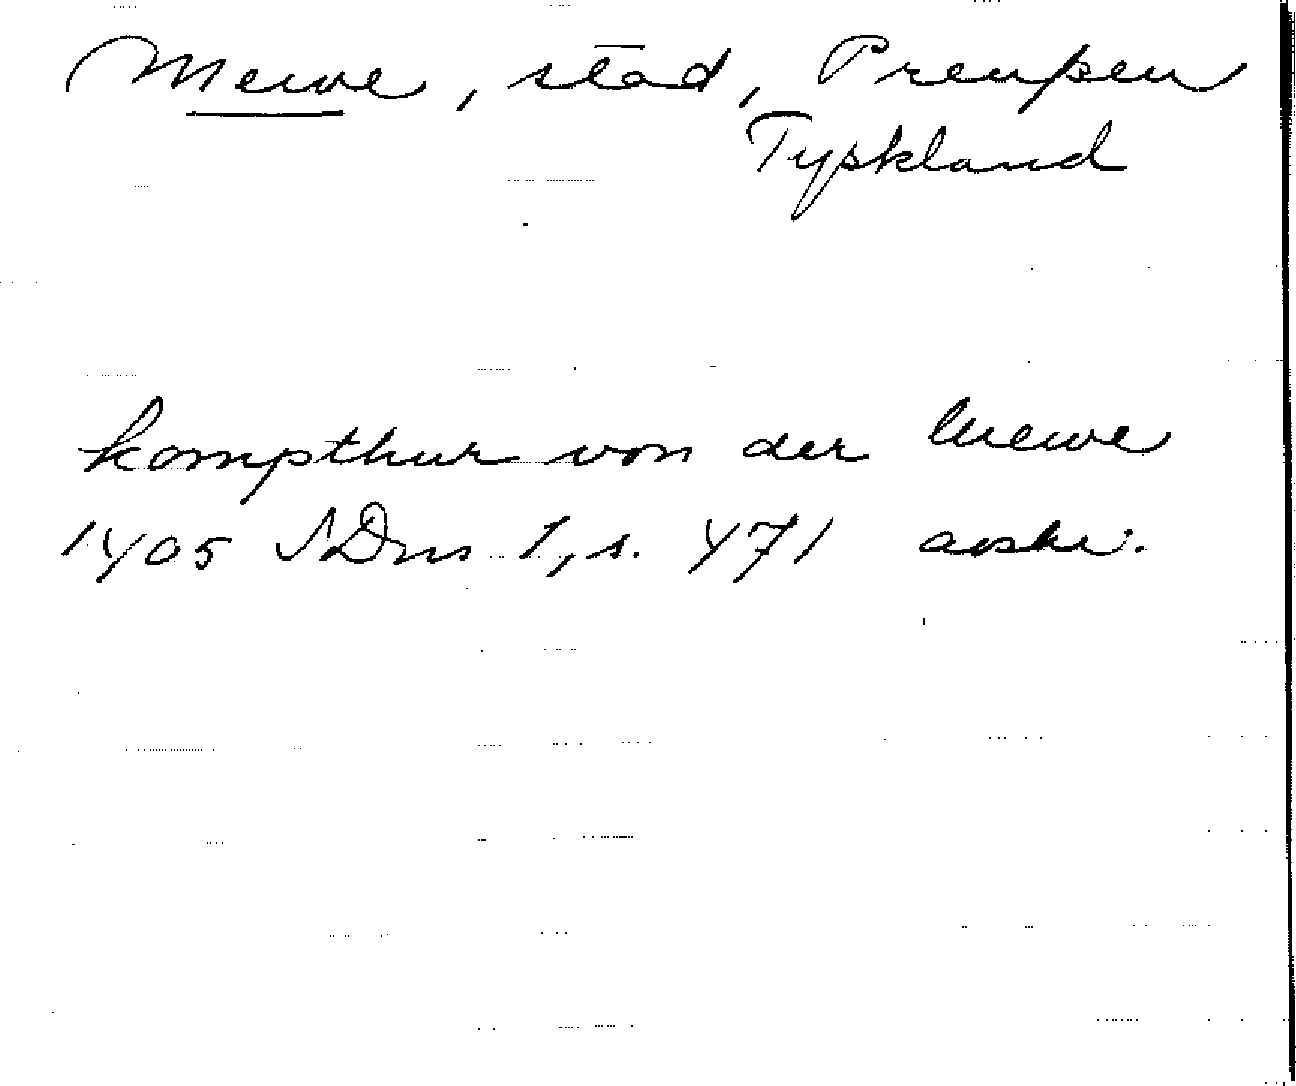 Mewe, stad, Preußen
Tyskland
kompthur von der Mewe
1405 SDns 1, s. 471 avskr.